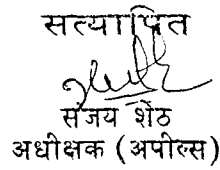 सत्यापित
संजय शेठ
अधीक्षक (अपील्स)